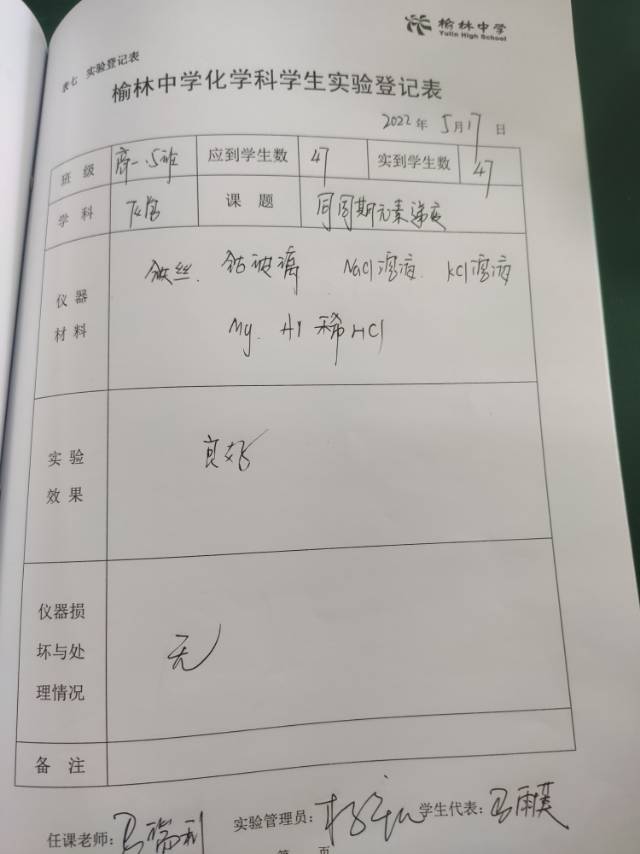 榆林中学
Yulin High School
表七 实验登记表
榆林中学化学科学生实验登记表
2022 年 5 月 17 日
班 级 高一.5班 应到学生数 47 实到学生数 47
学 科 化学 课 题 同周期元素递变
仪 器 材 料
铂丝. 钴玻璃 NaCl溶液. KCl溶液
Mg. Al 稀HCl
实 验 效 果
良好
仪器损
坏与处
理情况
无
备 注
任课老师: 实验管理员: 学生代表:
第 页